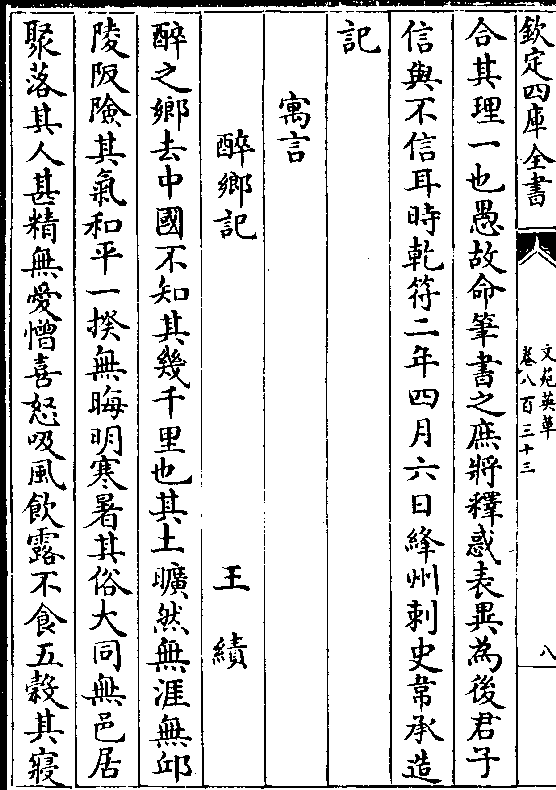 欽定四庫全書
文苑英華
卷八百三十三
八
合其理一也愚故命筆書之庶將釋惑表異為後君子
信與不信耳時乾符二年四月六日絳州刺史常承造
記
寓言
醉鄉記 王績
醉之鄉去中國不知其幾千里也其土曠然無涯無邱
陵阪險其氣和平一揆無晦明寒暑其俗大同無邑居
聚落其人甚精無愛憎喜怒吸風飲露不食五穀其寢